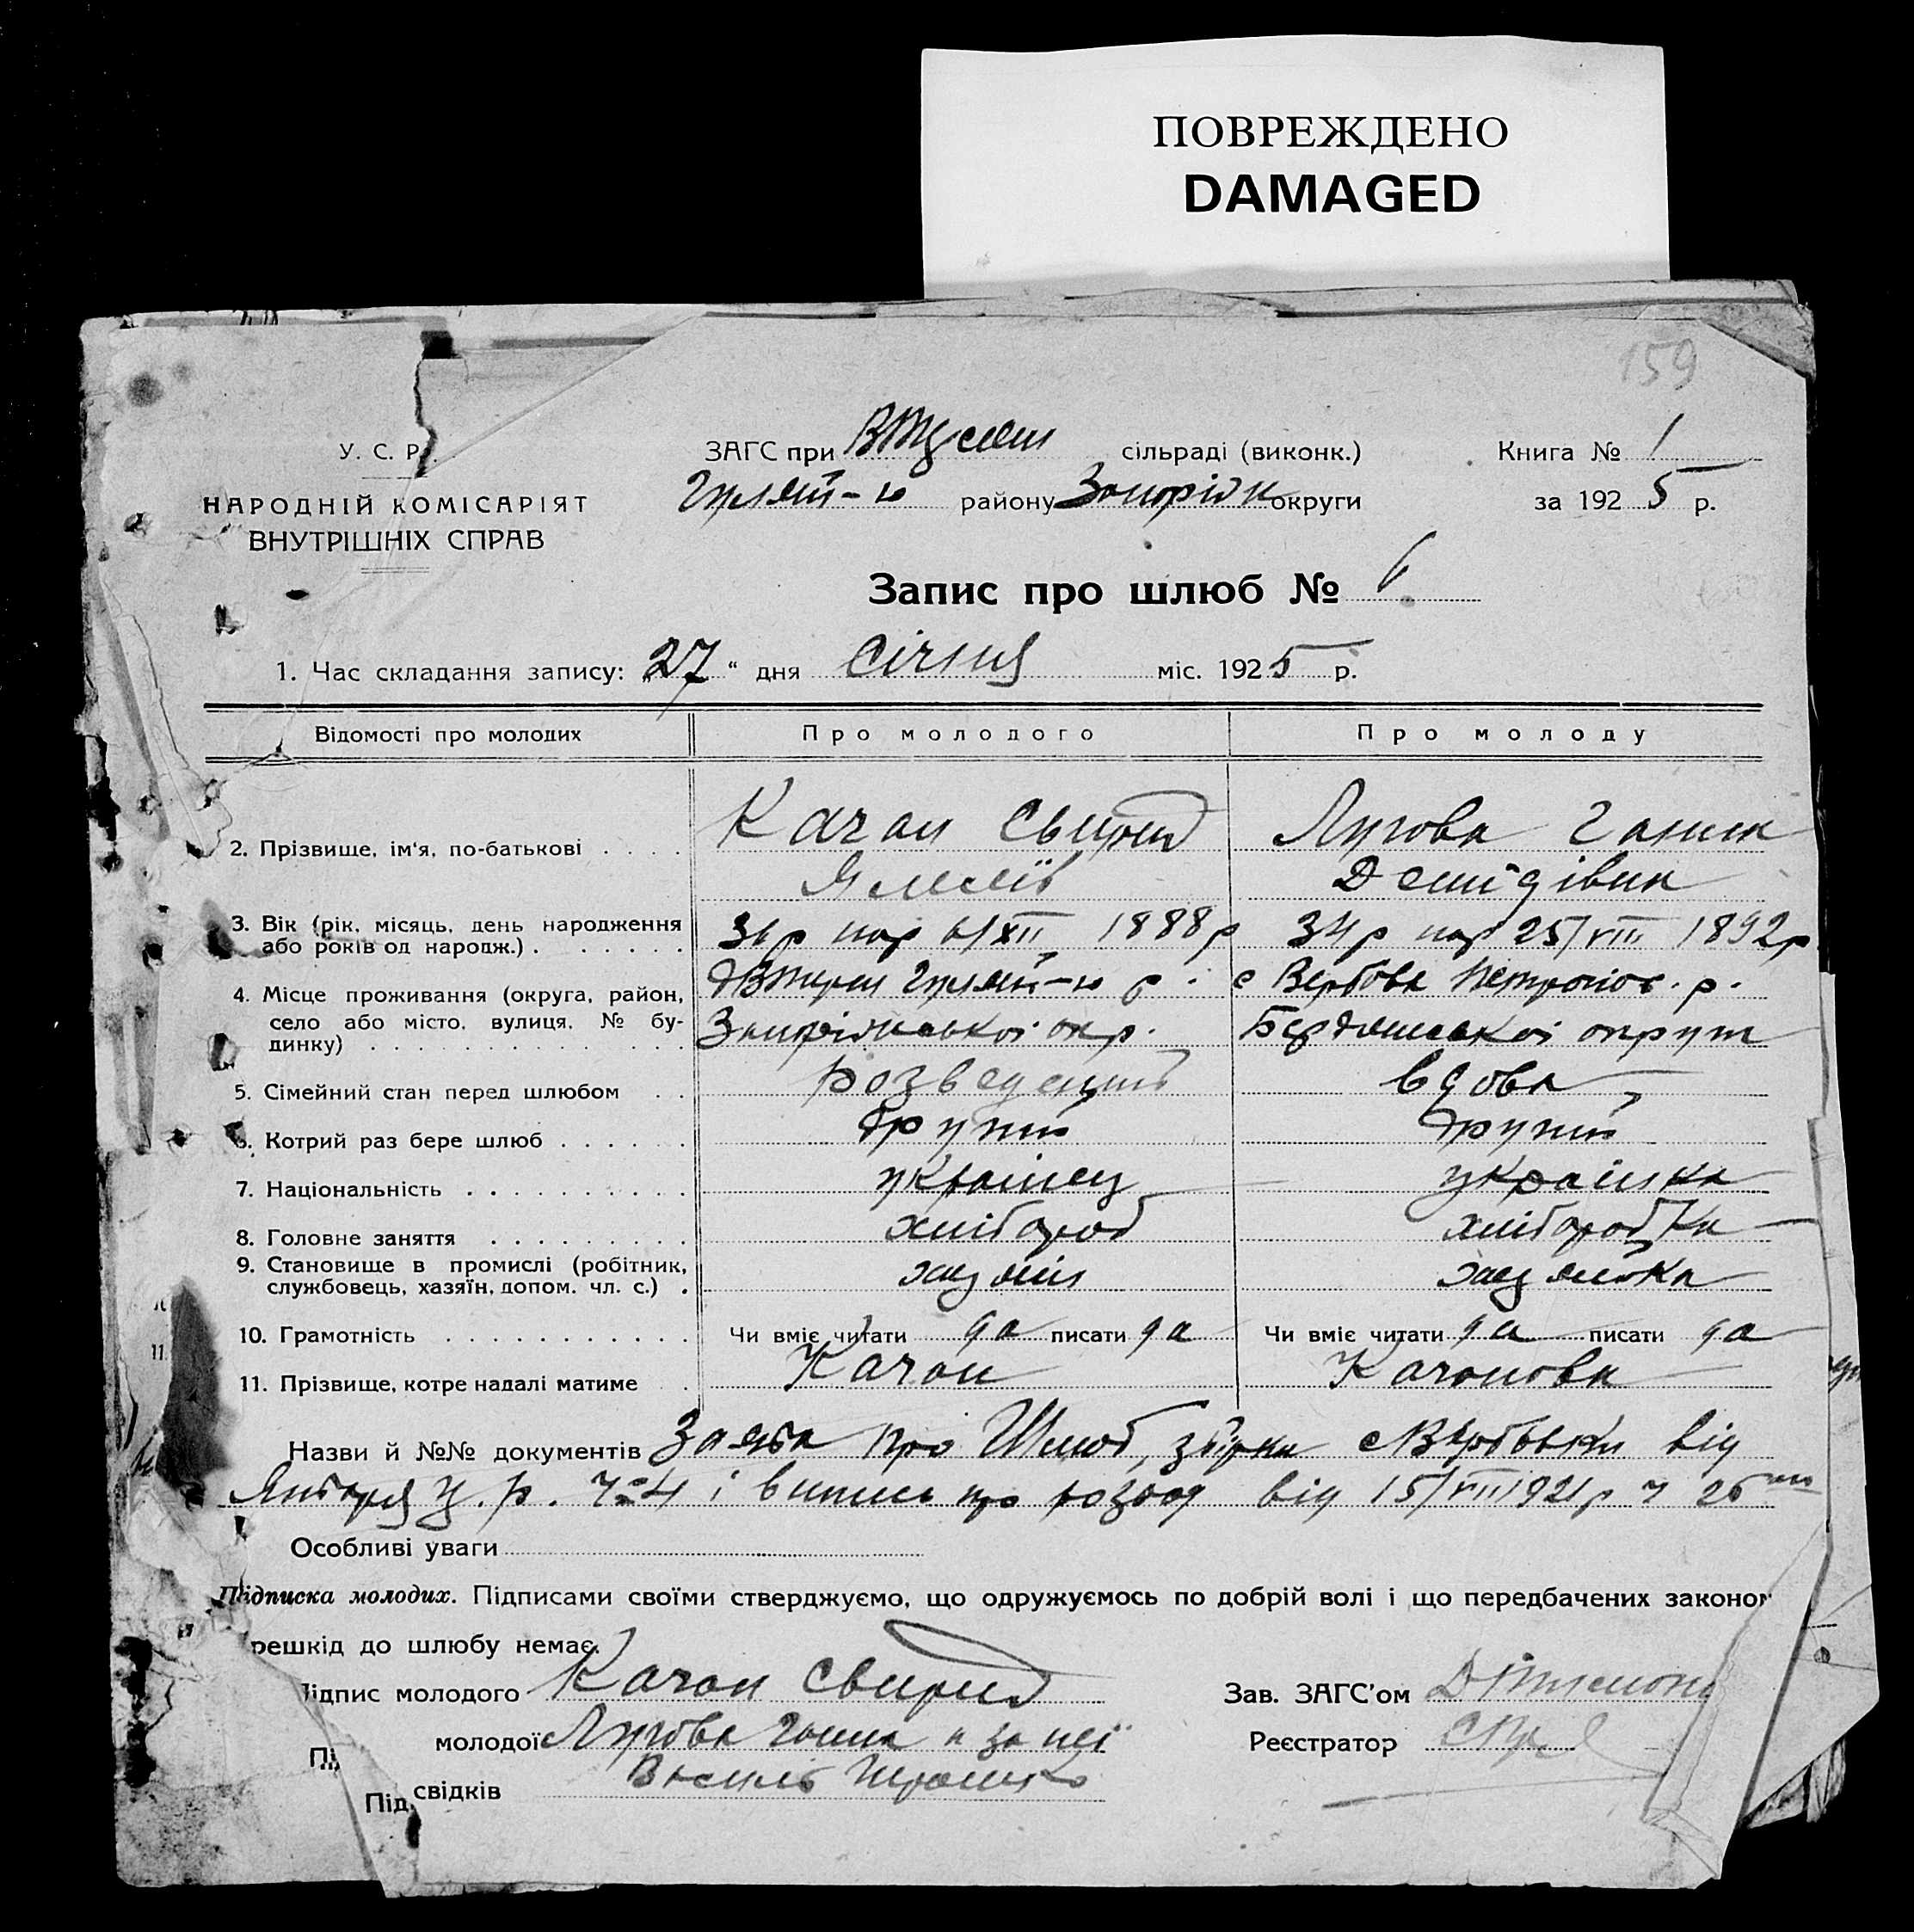 ПОВРЕЖДЕНО
DAMAGED
159
У. С. Р.
НАРОДНІЙ КОМІСАРІЯТ
ВНУТРІШНІХ СПРАВ
ЗАГС при сільраді (виконк.)
району Запоріж округи
Книга № 1
за 1925 р.
Запис про шлюб № 6
1. Час складання запису: „27“ дня Січня міс. 1925 р.
Відомості про молодих
Про молодого
Про молоду
2. Прізвище, ім‘я, по-батькові . . . .
Качан Свирид
Лугова Ганна
Демідівна
3. Вік (рік, місяць, день народження
або років од народж.) . . . . . .
36 р нар 6/XII 1888 р
нар 25/VIII 1892 р.
4. Місце проживання (округа, район,
село або місто, вулиця, № бу-
динку) . . . . . . . . . . . . . .
Запоріжської окр.
с Вербова р.
Бердянської округи
5. Сімейний стан перед шлюбом . .
розведений
вдова
6. Котрий раз бере шлюб . . . . . .
другий
другий
7. Національність . . . . . . . . . .
українец
українка
8. Головне заняття . . . . . . . . .
хлібороб
хліборобка
9. Становище в промислі (робітник,
службовець, хазяїн, допом. чл. с.) .
хазяїн
хазяйка
10. Грамотність . . . . . . . . . . .
Чи вміє читати да писати да
Чи вміє читати да писати да
11. Прізвище, котре надалі матиме .
Качан
Качанова
Назви й №№ документів Заява про Шлюб, від
Января ц. р. ч 4 і випись про розвод від 15/VIII 1921 р ч 26
Особливі уваги
Підписка молодих. Підписами своїми стверджуємо, що одружуємось по добрій волі і що передбачених законом
решкід до шлюбу немає.
ідпис молодого Качан Свирид
Зав. ЗАГС’ом
Пі молодої Лугова Ганна а за неї
Реєстратор
Василь
Під свідків